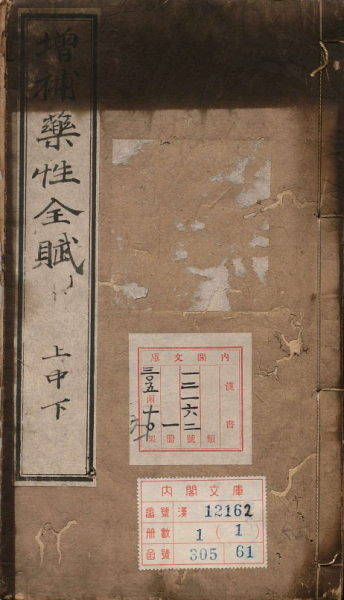 增補藥性全賦
上中下
內閣文庫
漢書
一二一六二
三〇五函
類號冊
一
內閣文庫
番號 漢 12162
冊數 1 (1)
函號 305 61